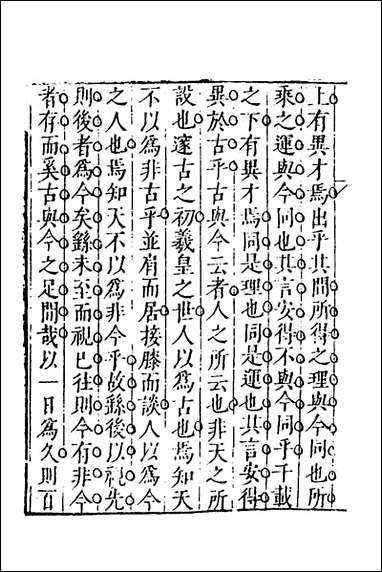 上有異才焉出乎其間所得之理與今同也所
乘之運與今同也其言安得不與今同乎千載
之下有異才焉同是理也同是運也其言安得
異於古乎古與今云者人之所云也非天之所
設也邃古之初羲皇之世人以為古也焉知天
不以為非古乎並肩而居接膝而談人以為今
之人也焉知天不以為非今乎故繇後以視先
則後者為今矣繇未至而視已往則今有非今
者存而奚古與今之足間哉以一日為久則百